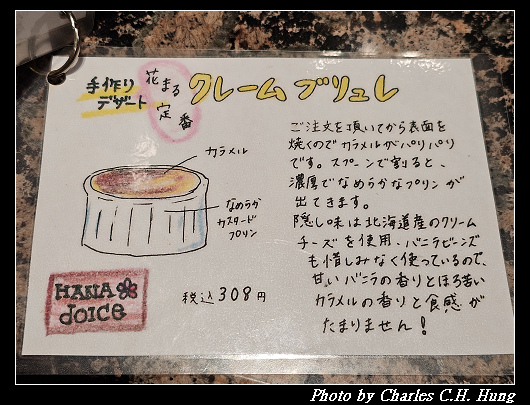 手作り
デザート
花まる
定番
クレームブリュレ
カラメル
なめらか
カスタード
プリン
ご注文を頂いてから表面を
焼くのでカラメルがパリパリ
です。スプーンで割ると、
濃厚でなめらかなプリンが
出てきます。
隠し味は北海道産のクリーム
チーズを使用、バニラビーンズ
も惜しみなく使っているので、
甘いバニラの香りとほろ苦い
カラメルの香りと食感が
たまりません!
HANA
dOICE
税込308円
Photo by Charles C.H. Hung